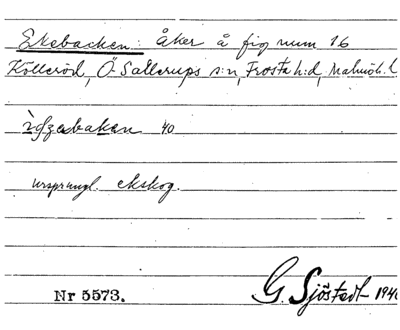 Ekebacken: åker å fig num 16
Kölleröd, Ö. Sallerups s:n, Frosta h:d, Malmöh. l
40
ursprungl. ekskog.
Nr 5573. G. Sjöstedt 1940